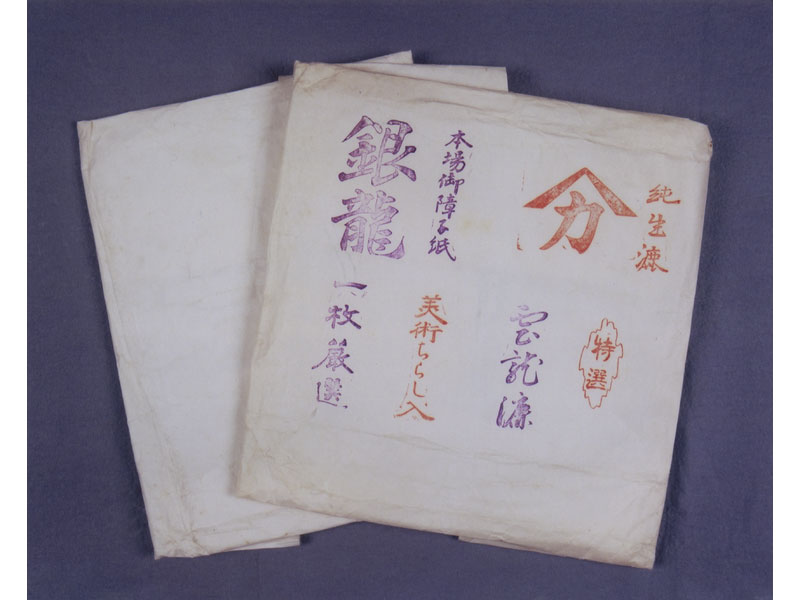 純生漉
カ
特選
雲龍漉
本場御障子紙
美術ちらし入
銀龍
一枚厳選